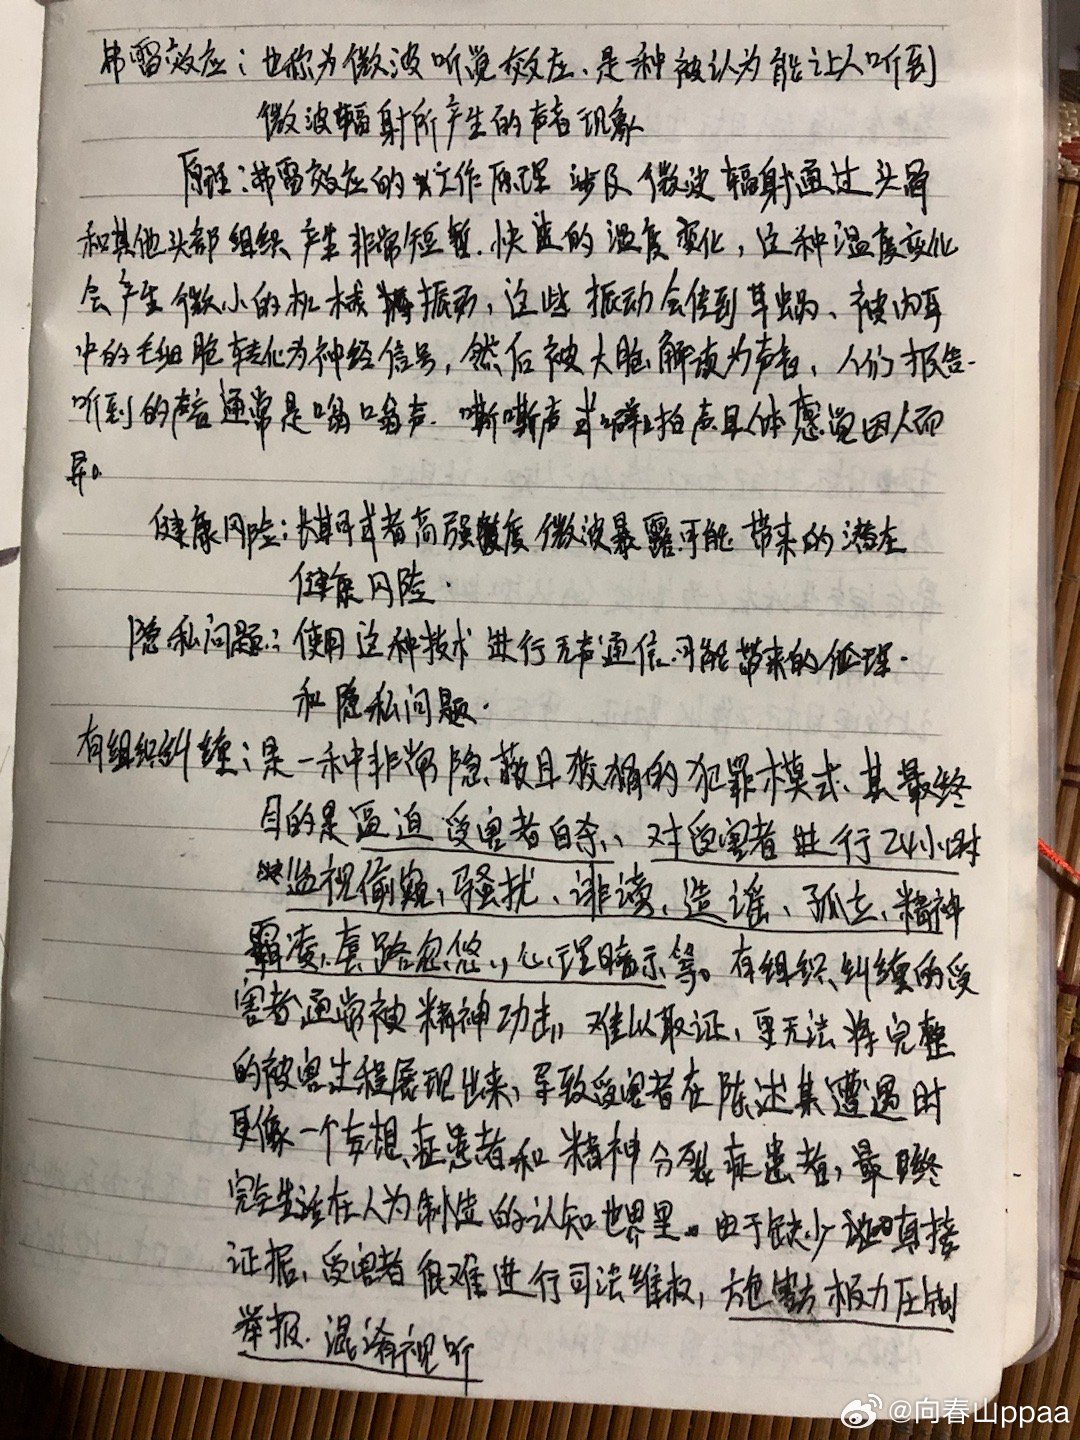 弗雷效应：也称为微波听觉效应、是种被认为能让人听到
微波辐射所产生的声音现象
原理：弗雷效应的工作原理 涉及 微波辐射通过头骨
和其他头部组织 产生非常短暂、快速的温度变化，这种温度变化
会产生微小的机械振动，这些振动会传到耳蜗、被内耳
中的毛细胞转化为神经信号，然后被大脑解读为声音、人们报告
听到的声音通常是嗡嗡声、嘶嘶声或噼拍声具体感觉因人而
异。
健康风险：长期或者高强度微波暴露可能带来的潜在
健康风险.
隐私问题：使用这种技术进行无声通信可能带来的伦理.
和隐私问题.
有组织纠缠：是一种非常隐蔽且狡猾的犯罪模式、其最终
目的是逼迫受害者自杀、对受害者进行24小时
监视偷窥、骚扰、诽谤、造谣、孤立、精神
霸凌、套路忽悠、心理暗示等。有组织纠缠的受
害者通常被精神功击，难以取证、更无法将完整
的被害过程展现出来，导致受害者在陈述其遭遇时
更像一个妄想症患者和精神分裂症患者，最终
完全生活在人为制造的认知世界里。由于缺少直接
证据、受害者很难进行司法维权，极力压制
举报、混淆视听
@向春山ppaa